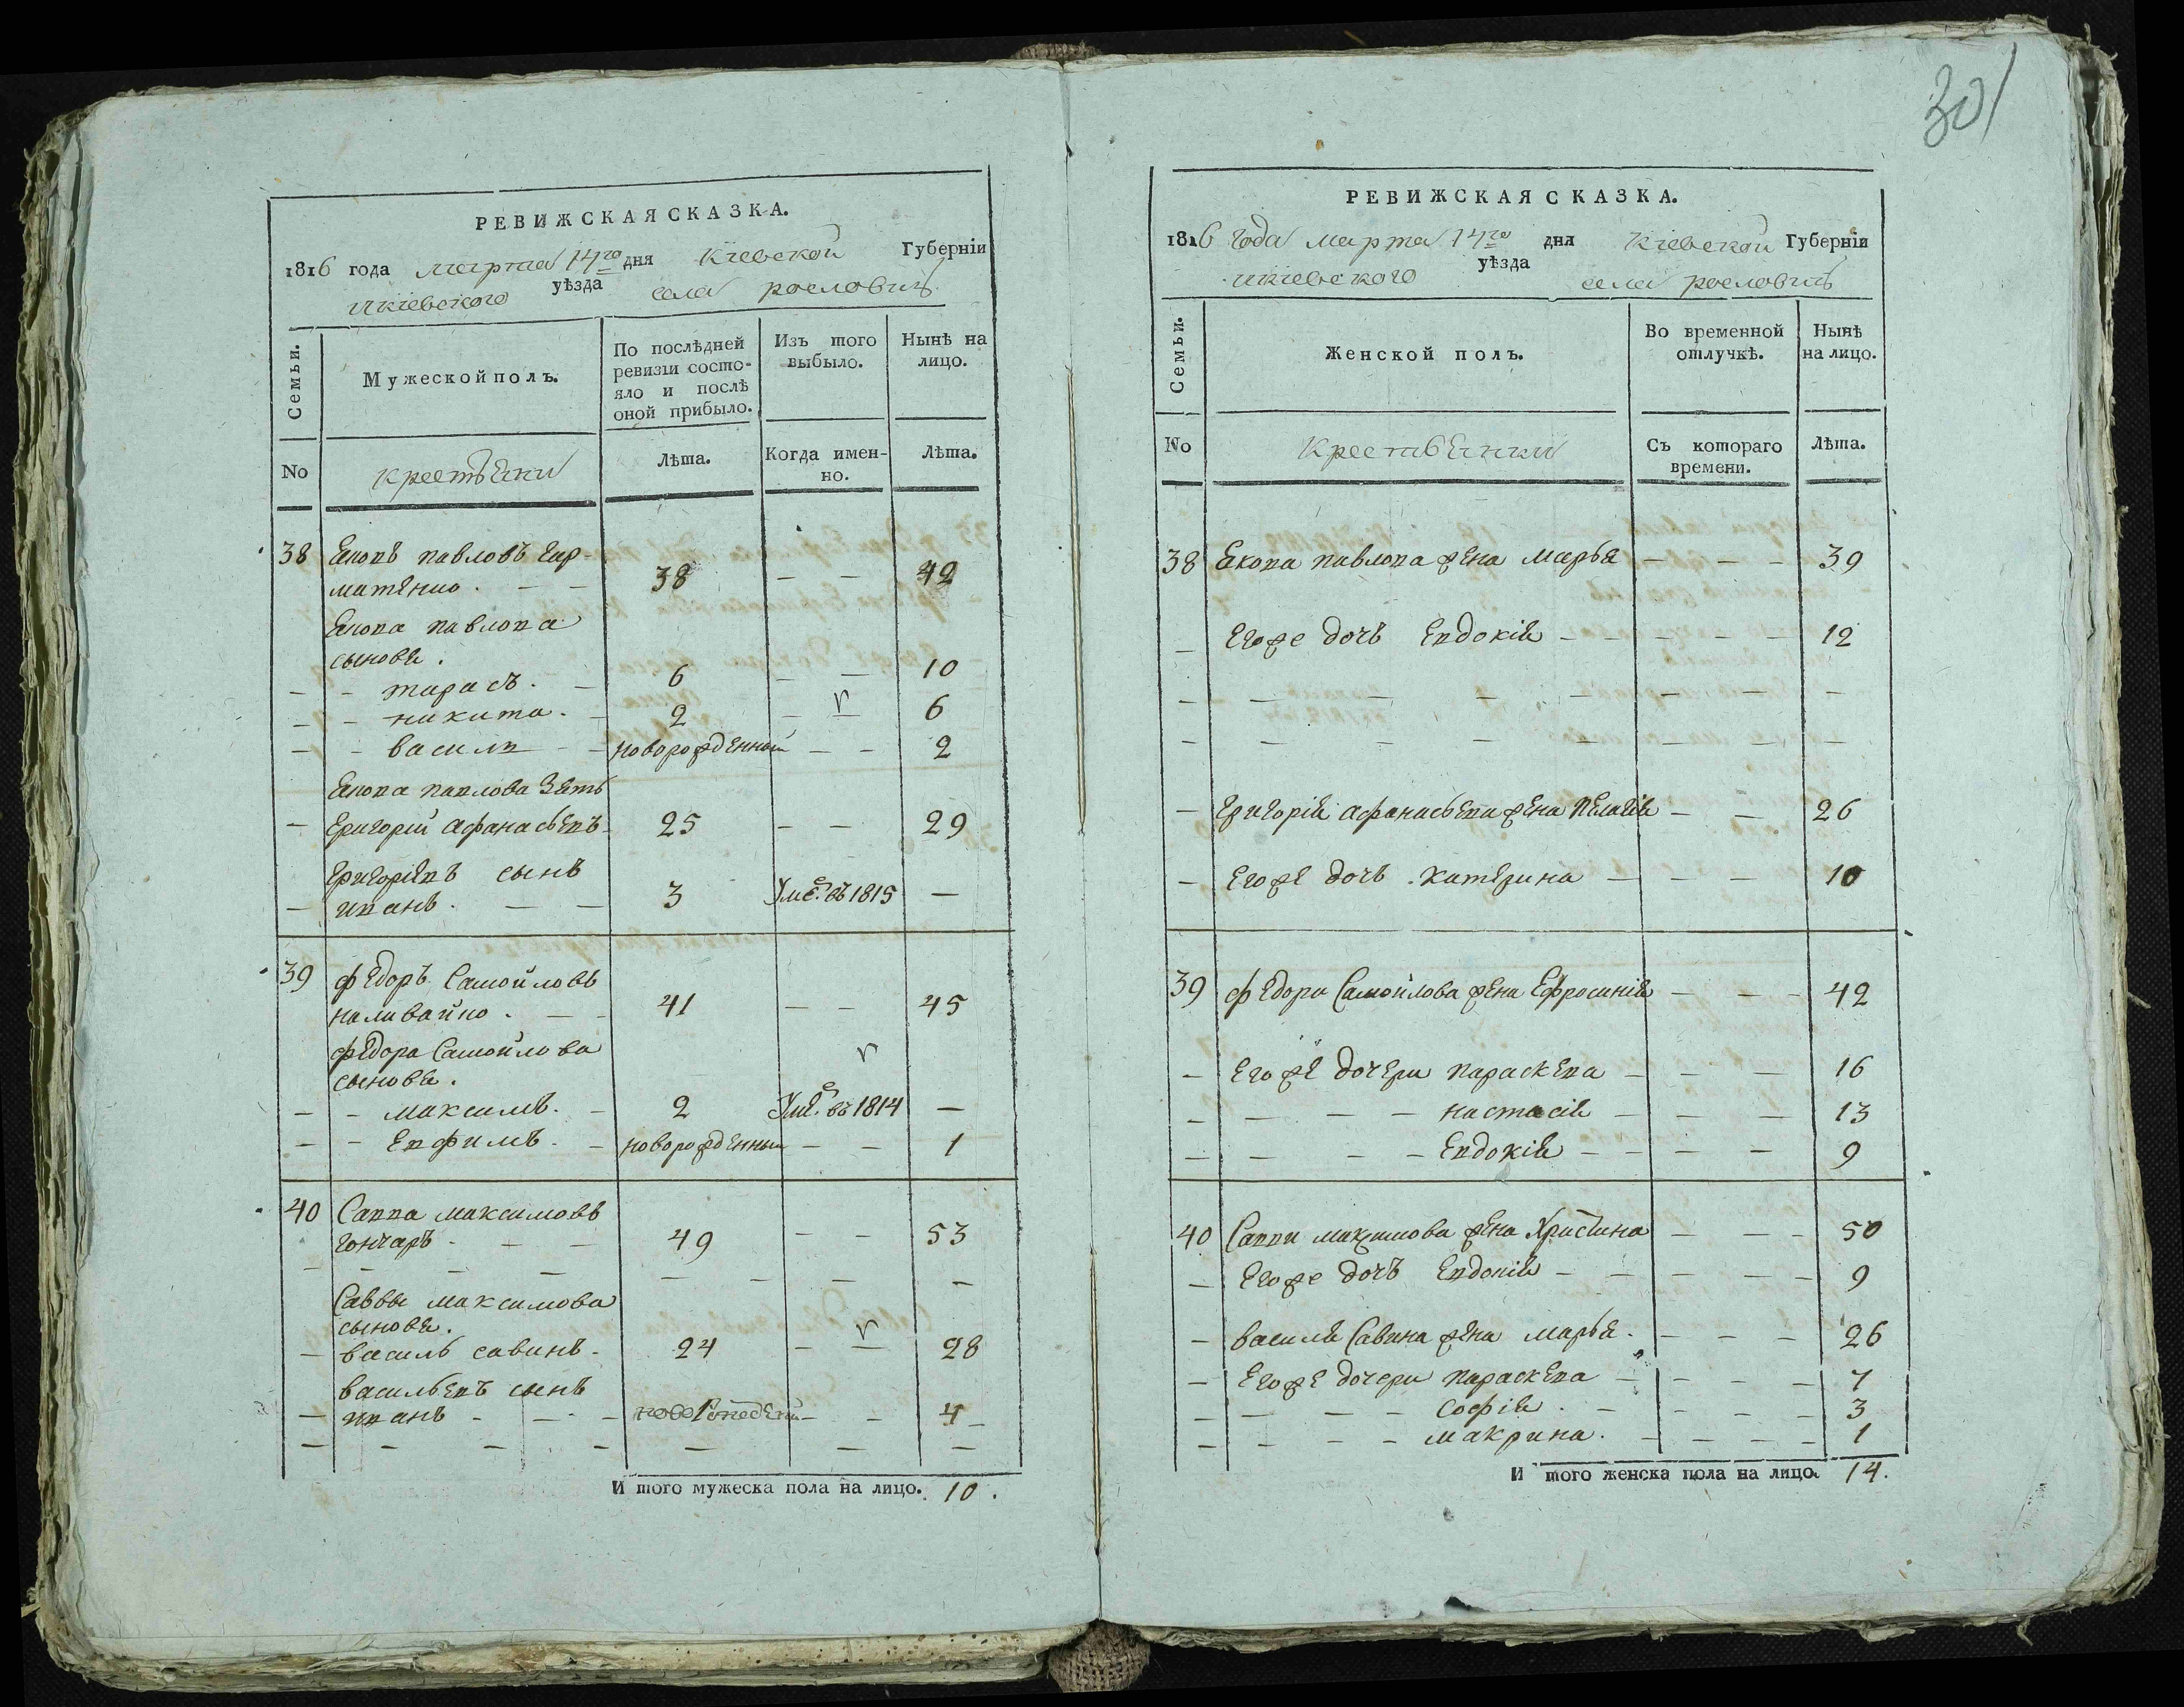 301
РЕВИЖСКАЯ СКАЗКА.
1816 года марта 14го дня Кіевской Губерніи
икіевского уѣзда села рословичъ
Семьи.
Мужеской полъ.
По послѣдней ревизіи состояло и послѣ оной прибыло.
Изъ того выбыло.
Нынѣ на лицо.
No
крестьяни
Лѣта.
Когда имен-
но.
Лѣта.
38 Екопъ павловъ Гар-
матенко . — — 38 — — 42
Екопа павлова
сыновя .
— — тарасъ . — 6 — — 10
— — никита . — 2 — — 6
— — василь — — новорожденный — — 2
Екопа павлова зять
— Григорій афанасьевъ 25 — — 29
Григоріевъ сынъ
— иванъ . — — 3 Уме. въ 1815 —
39 федоръ Самойловъ
наливайко . — — 41 — — 45
федора Самойлова
сыновя .
— — максимъ . — 2 Уме. въ 1814 —
— — Евфимъ . — новорожденный — — 1
40 Савва максимовъ
гончаръ . — — 49 — — 53
— — — — — — — —
Саввы максимова
сыновя .
— василь савинъ . 24 — — 28
васильевъ сынъ
— иванъ — — — — — 4 —
— — — — — — —
И того мужеска пола на лицо. 10 .
РЕВИЖСКАЯ СКАЗКА.
1816 года марта 14го дня Кіевской Губерніи
икіевского уѣзда села рословичъ
Семьи.
Женской полъ.
Во временной отлучкѣ.
Нынѣ на лицо.
No
Крестьянки
Съ котораго времени.
Лѣта.
38 Екопа павлова жена марья — — — 39
— Егоже дочъ Евдокія — — — — 12
— — — — — — — — —
— — — — — — — — —
— Григорія афанасьева жена Пелагія — — 26
— Егоже дочъ . катерина — — — 10
39 федора Самойлова жена Ефросинія — — — 42
— Егоже дочери параскева — — — 16
— — — — настасія — — — 13
— — — — Евдокія — — — — 9
40 Саввы максимова жена Христина — — — 50
— Егоже дочъ Евдокія — — — — — 9
— василя Савина жена марья . — — — 26
— Егоже дочери параскева — — — — 7
— — — — софія . — — — — 3
— — — — макрина . — — — — 1
И того женска пола на лицо. 14.